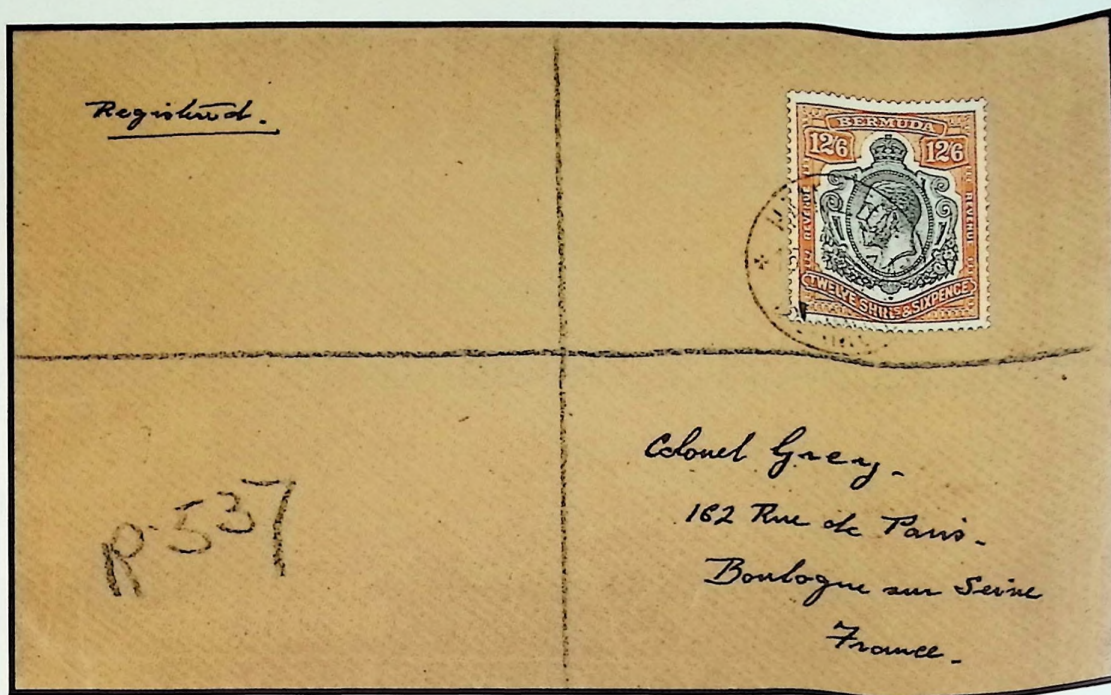 Registered.
BERMUDA
12/6 12/6
REVENUE REVENUE
TWELVE SHILLS & SIXPENCE
R-537
Colonel Grey.
162 Rue de Paris.
Boulogne sur Seine
France.